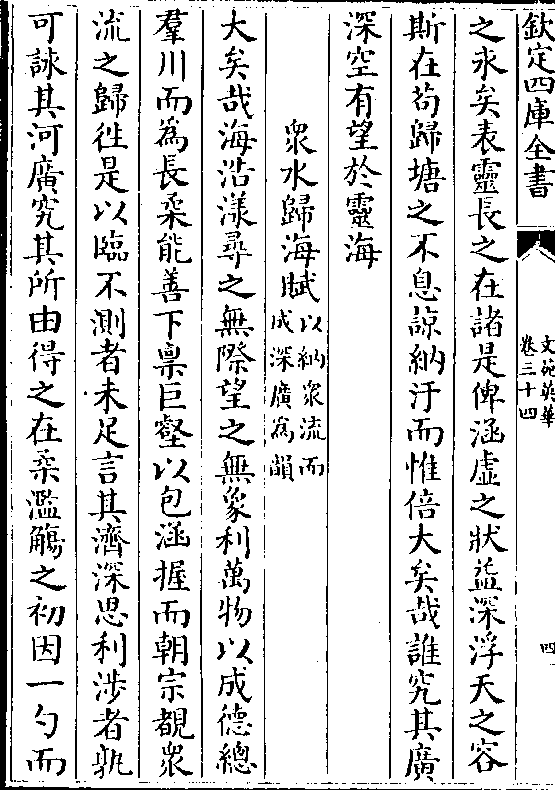 欽定四庫全書
文苑英華
卷三十四
四
之永矣表靈長之在諸是俾涵虛之狀益深浮天之容
斯在苟歸塘之不息諒納汙而惟倍大矣哉誰究其廣
深空有望於靈海
衆水歸海賦以納衆流而成深廣為韻
大矣哉海浩漾尋之無際望之無象利萬物以成德總
羣川而為長柔能善下稟巨壑以包涵握而朝宗覩衆
流之歸徃是以臨不測者未足言其濟深思利涉者孰
可詠其河廣究其所由得之在柔濫觴之初因一勺而